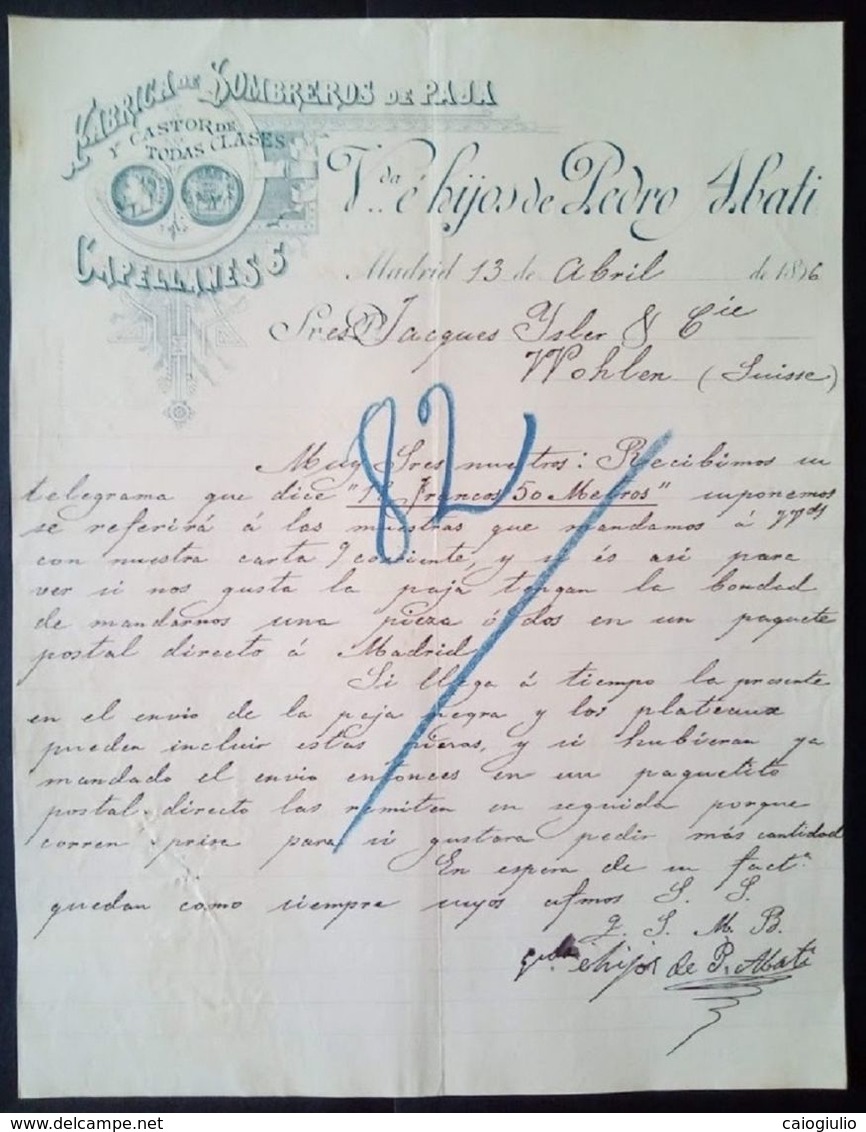 FÁBRICA DE SOMBREROS DE PAJA
Y CASTOR DE
TODAS CLASES
CAPELLANES 6
V.da é hijos de Pedro Abati
Madrid 13 de Abril de 1896
Sres Jacques Isler & Cie
Wohlen (Suisse)
82
Muy Sres nuestros: Recibimos su
telegrama que dice "18 francos 50 Metros" suponemos
se referirá á las muestras que mandamos á
con nuestra carta 9 corriente, y si és asi para
ver si nos gusta la paja tengan la bondad
de mandarnos una pieza ó dos en un paquete
postal directo á Madrid
Si llega á tiempo la presente
en el envio de la paja negra y los plateaux
pueden incluir estas piezas, y si hubieran ya
mandado el envio entonces en un paquetito
postal directo las remiten en seguida porque
corren prisa para si gustara pedir más cantidad
En espera de su fact.a
quedan como siempre suyos afmos S. S.
q. S. M. B.
é hijos de P. Abati
delcampe.net
caiogiulio